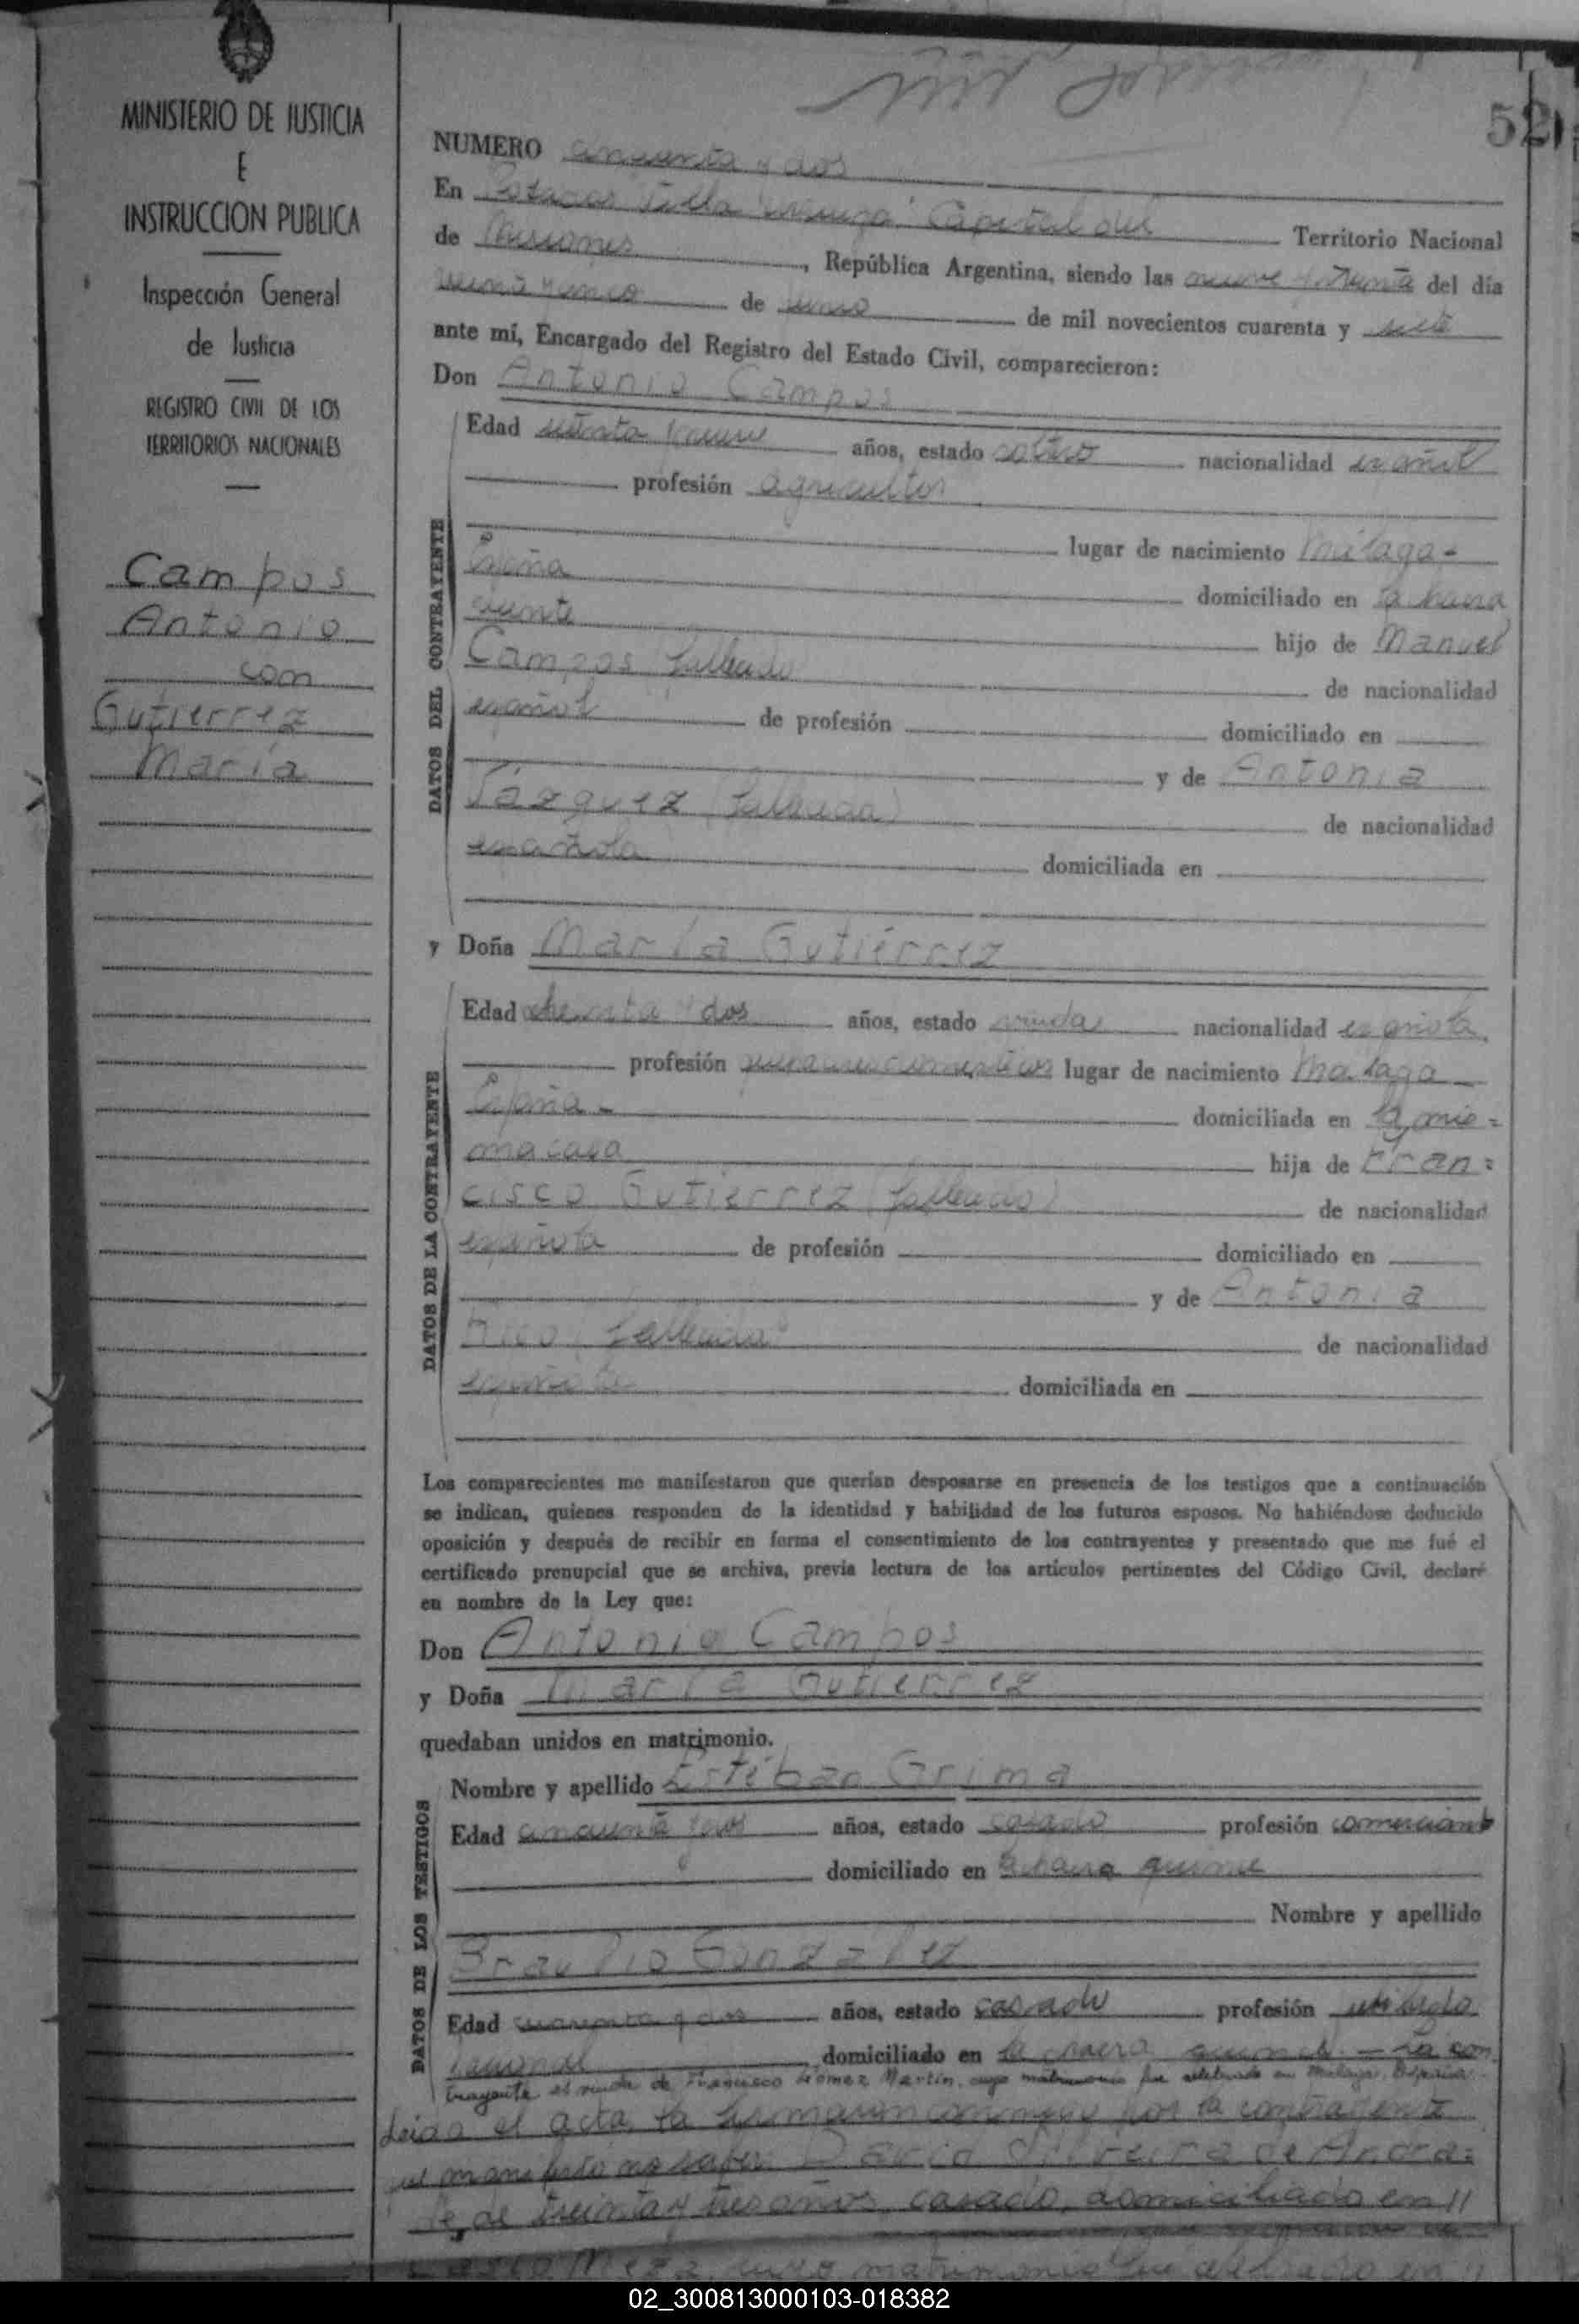 MINISTERIO DE JUSTICIA
E
INSTRUCCION PUBLICA
Inspección General
de Justicia
REGISTRO CIVIL DE LOS
TERRITORIOS NACIONALES
Campos
Antonio
con
Gutierrez
María
52
NUMERO cincuenta y dos
En Posadas Villa Capital del Territorio Nacional
de Misiones, República Argentina, siendo las nueve y treinta del día
de de mil novecientos cuarenta y siete
ante mí, Encargado del Registro del Estado Civil, comparecieron:
Don Antonio Campos
Edad años, estado soltero nacionalidad español
profesión agricultor
DATOS DEL CONTRAYENTE
lugar de nacimiento Málaga-
España domiciliado en la chacra
hijo de Manuel
Campos fallecido de nacionalidad
español de profesión domiciliado en
y de Antonia
Vázquez (fallecida) de nacionalidad
española domiciliada en
y Doña María Gutiérrez
Edad y dos años, estado viuda nacionalidad española
profesión quehaceres domésticos lugar de nacimiento Málaga
DATOS DE LA CONTRAYENTE
España - domiciliada en la mis=
ma casa hija de Fran=
cisco Gutierrez (fallecido) de nacionalidad
española de profesión domiciliado en
y de Antonia
Rico (fallecida) de nacionalidad
española domiciliada en
Los comparecientes me manifestaron que querían desposarse en presencia de los testigos que a continuación
se indican, quienes responden de la identidad y habilidad de los futuros esposos. No habiéndose deducido
oposición y después de recibir en forma el consentimiento de los contrayentes y presentado que me fué el
certificado prenupcial que se archiva, previa lectura de los artículos pertinentes del Código Civil, declaré
en nombre de la Ley que:
Don Antonio Campos
y Doña María Gutierrez
quedaban unidos en matrimonio.
DATOS DE LOS TESTIGOS
Nombre y apellido Esteban Grima
Edad cincuenta y dos años, estado casado profesión comerciante
domiciliado en la chacra quince
Nombre y apellido
Braulio Gonzalez
Edad cuarenta y dos años, estado casado profesión
domiciliado en la chacra - La con
trayente es viuda de Francisco Gómez Martín, cuyo matrimonio fue celebrado en Málaga, España.
Leida el acta, la firmaron conmigo y por la contrayente
que manifestó no saber: David Silveira de Andra=
de, de treinta y tres años, casado, domiciliado en //
matrimonio fue celebrado en //
02_300813000103-018382